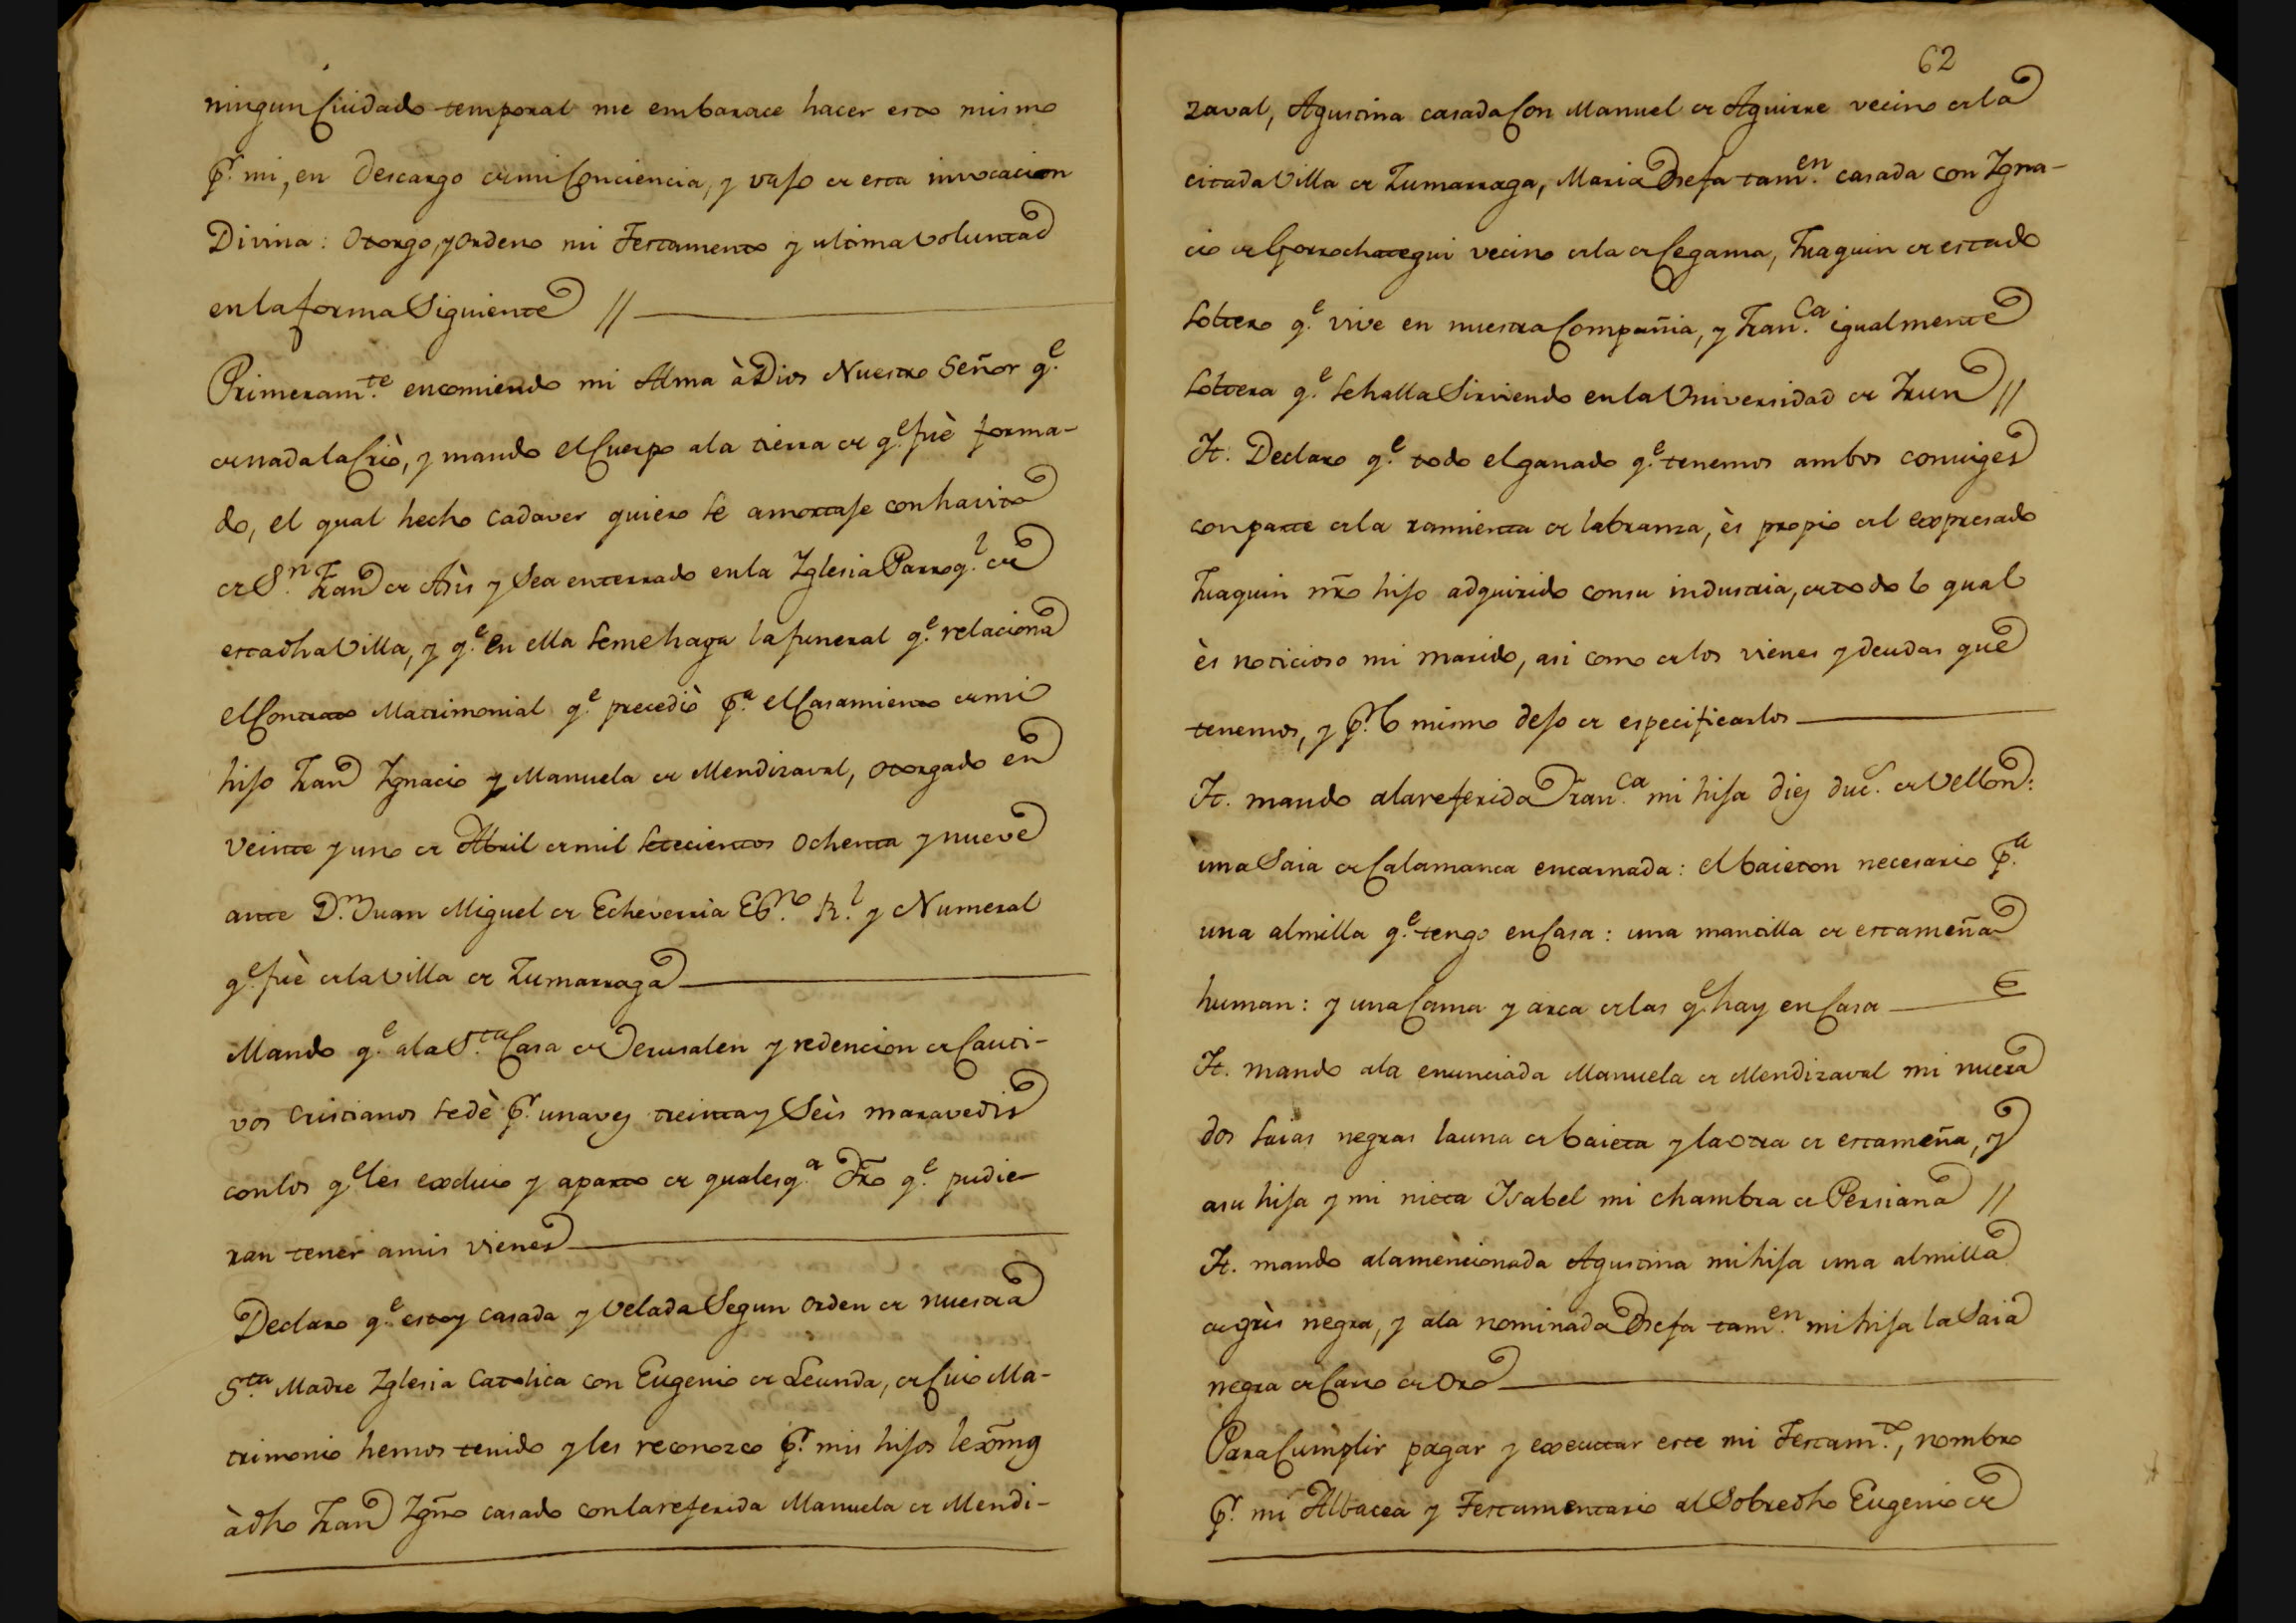 ningun Cuidado temporal me embarace hacer esto mismo
pr. mi, en descargo de mi Conciencia, y vajo de esta invocacion
Divina: Otorgo, y Ordeno mi Testamento y ultima voluntad
en la forma Siguiente //
Primeramte. encomiendo mi Alma à Dios Nuestro Señor qe.
de nada la Criò, y mando el Cuerpo a la tierra de qe. fuè forma-
do, el qual hecho cadaver quiero se amortaje con havito
de Sn. Fran de Asìs y Sea enterrado en la Iglesia Parroql. de
esta dha Villa, y qe. en ella se me haga la funeral qe. relaciona
el Contrato Matrimonial qe. precediò pa. el Casamiento de mi
hijo Fran Ignacio y Manuela de Mendizaval, otorgado en
veinte y uno de Abril de mil setecientos ochenta y nueve
ante Dn. Juan Miguel de Echeverria Essno. Rl. y Numeral
qe. fuè de la Villa de Zumarraga
Mando qe. a la Sta. Casa de Jerusalen y redencion de Cauti-
vos cristianos se dè pr. una vez treinta y Seìs maravedis
con los qe. les excluio y aparto de qualesqa. dro qe. pudie-
ran tener a mis vienes
Declaro qe. estoy casada y Velada Segun orden de nuestra
Sta. Madre Iglesia Catolica con Eugenio de Leunda, de Cuio Ma-
trimonio hemos tenido y les reconozco pr. mis hijos lexmos
à dho Fran Igno casado con la referida Manuela de Mendi-
62
zaval, Agustina casada Con Manuel de Aguirre vecino de la
citada Villa de Zumarraga, Maria Josefa tamen. casada con Igna-
cio de Gorrochategui vecino de la de Cegama, Juaquin de estado
soltero qe. vive en nuestra Compañia, y Franca. igualmente
soltera qe. se halla Sirviendo en la Universidad de Irun //
It. Declaro qe. todo el ganado qe. tenemos ambos conuiges
con parte de la ramienta de labranza, ès propio del expresado
Juaquin nro hijo adquirido con su industria, de todo lo qual
ès noticioso mi marido, asi como de los vienes y deudas que
tenemos, y pr. lo mismo dejo de especificarlos
It. mando a la referida Franca. mi hija diez duc. de Vellon:
una Saia de Calamanca encarnada: el baieton necesario pa.
una almilla qe. tengo en Casa: una mantilla de estameña
human: y una Cama y arca de las qe. hay en Casa
It. mando a la enunciada Manuela de Mendizaval mi nuera
dos saias negras la una de baieta y la otra de estameña, y
a su hija y mi nieta Isabel mi chambra de Persiana //
It. mando a la mencionada Agustina mi hija una almilla
de grìs negra, y a la nominada Josefa tamen. mi hija la Saia
negra de Carro de Oro
Para Cumplir pagar y executar este mi Testamto., nombro
pr. mi Albacea y Testamentario al Sobredho Eugenio de